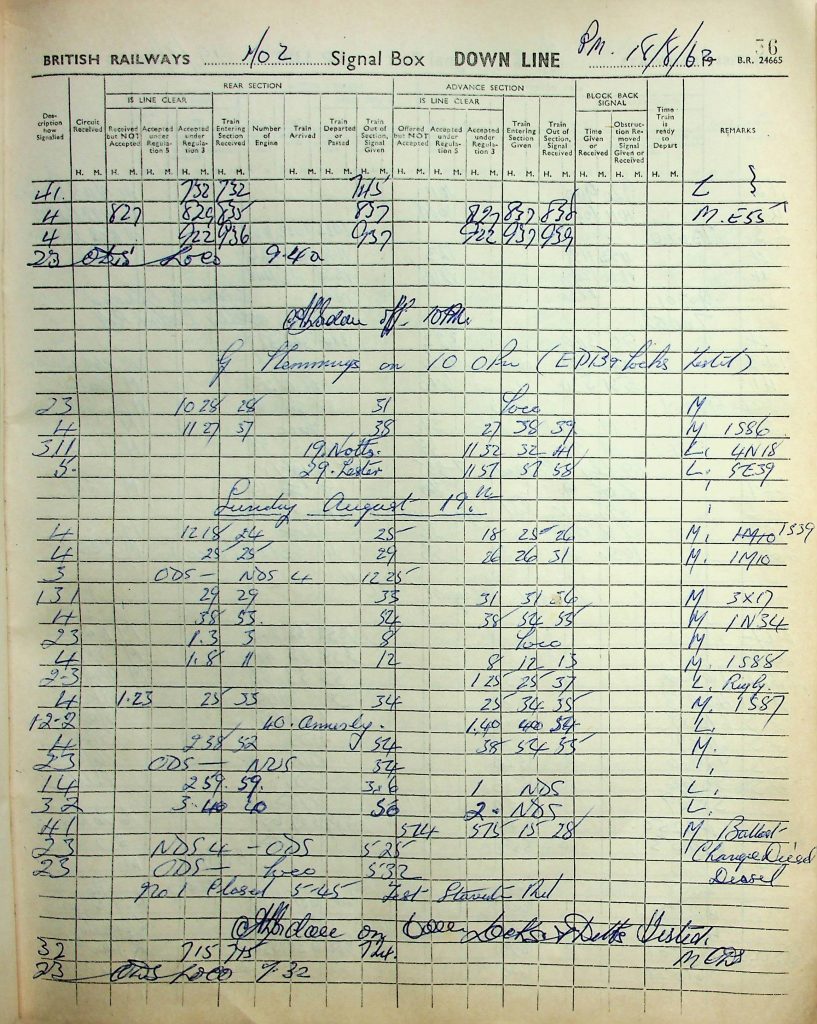 BRITISH RAILWAYS No 2 Signal Box DOWN LINE P.M. 18/8/62 56
B.R. 24665
REAR SECTION ADVANCE SECTION BLOCK BACK SIGNAL
IS LINE CLEAR IS LINE CLEAR
Description how Signalled Circuit Received Received but NOT Accepted Accepted under Regulation 5 Accepted under Regulation 3 Train Entering Section Received Number of Engine Train Arrived Train Departed or Passed Train Out of Section, Signal Given Offered but NOT Accepted Accepted under Regulation 5 Accepted under Regulation 3 Train Entering Section Given Train Out of Section, Signal Received Time Given or Received Obstruction Removed Signal Given or Received Time Train is ready to Depart REMARKS
H. M. H. M. H. M. H. M. H. M. H. M. H. M. H. M. H. M. H. M. H. M. H. M. H. M. H. M. H. M. H. M.
41. 732 732 745 L }
4 827 829 835 837 837 838 M. E55
4 922 936 937 922 937 939
23 ODS Loco 9.40
off 10 P.M.
G Flemmings on 10 0 Pm ( Locks tested )
23 10 28 28 31 Loco M
4 11 27 37 38 27 38 39 M 1S86
311 19. Notts. 11 32 32 41 L. 4N18
5. 29. Lester 11 57 57 58 L. 5E39
Sunday August 19.th
4 12 18 24 25 18 25 26 M. 1M10 1S39
4 25 25 29 26 26 31 M. 1M10
3 ODS — NDS 4 12 25
131 29 29 35 31 31 36 M 3X17
4 38 53. 54 38 54 55 M 1N34
23 1.3 3 8 Loco M
4 1.8 11 12 8 12 13 M. 1S88
2-3 1 25 25 37 L. Rugby.
4 1.23 25 33 34 25 34 35 M. 1S87
1-2-2 40. Annesly. 1.40 40 54 L.
4 2 38 52 54 38 54 55 M.
23 ODS — NDS 54
14 2 59. 59. 3.6 1 NDS L.
32 3.40 40 56 2. NDS L.
41 514 515 15 28 M Ballast
23 NDS 4 - ODS 5.25 Change Diesel
23 ODS — Loco 5.32 Diesel
No 1 Closed 5-45
on Locks & Tested.
32 715 715 724. M ODS
23 ODS LOCO 7.32